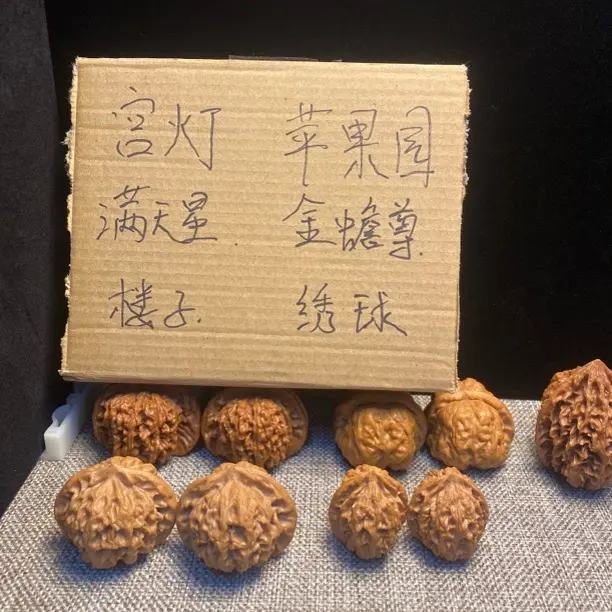 宫灯 苹果园
满天星. 金蟾尊.
楼子. 绣球